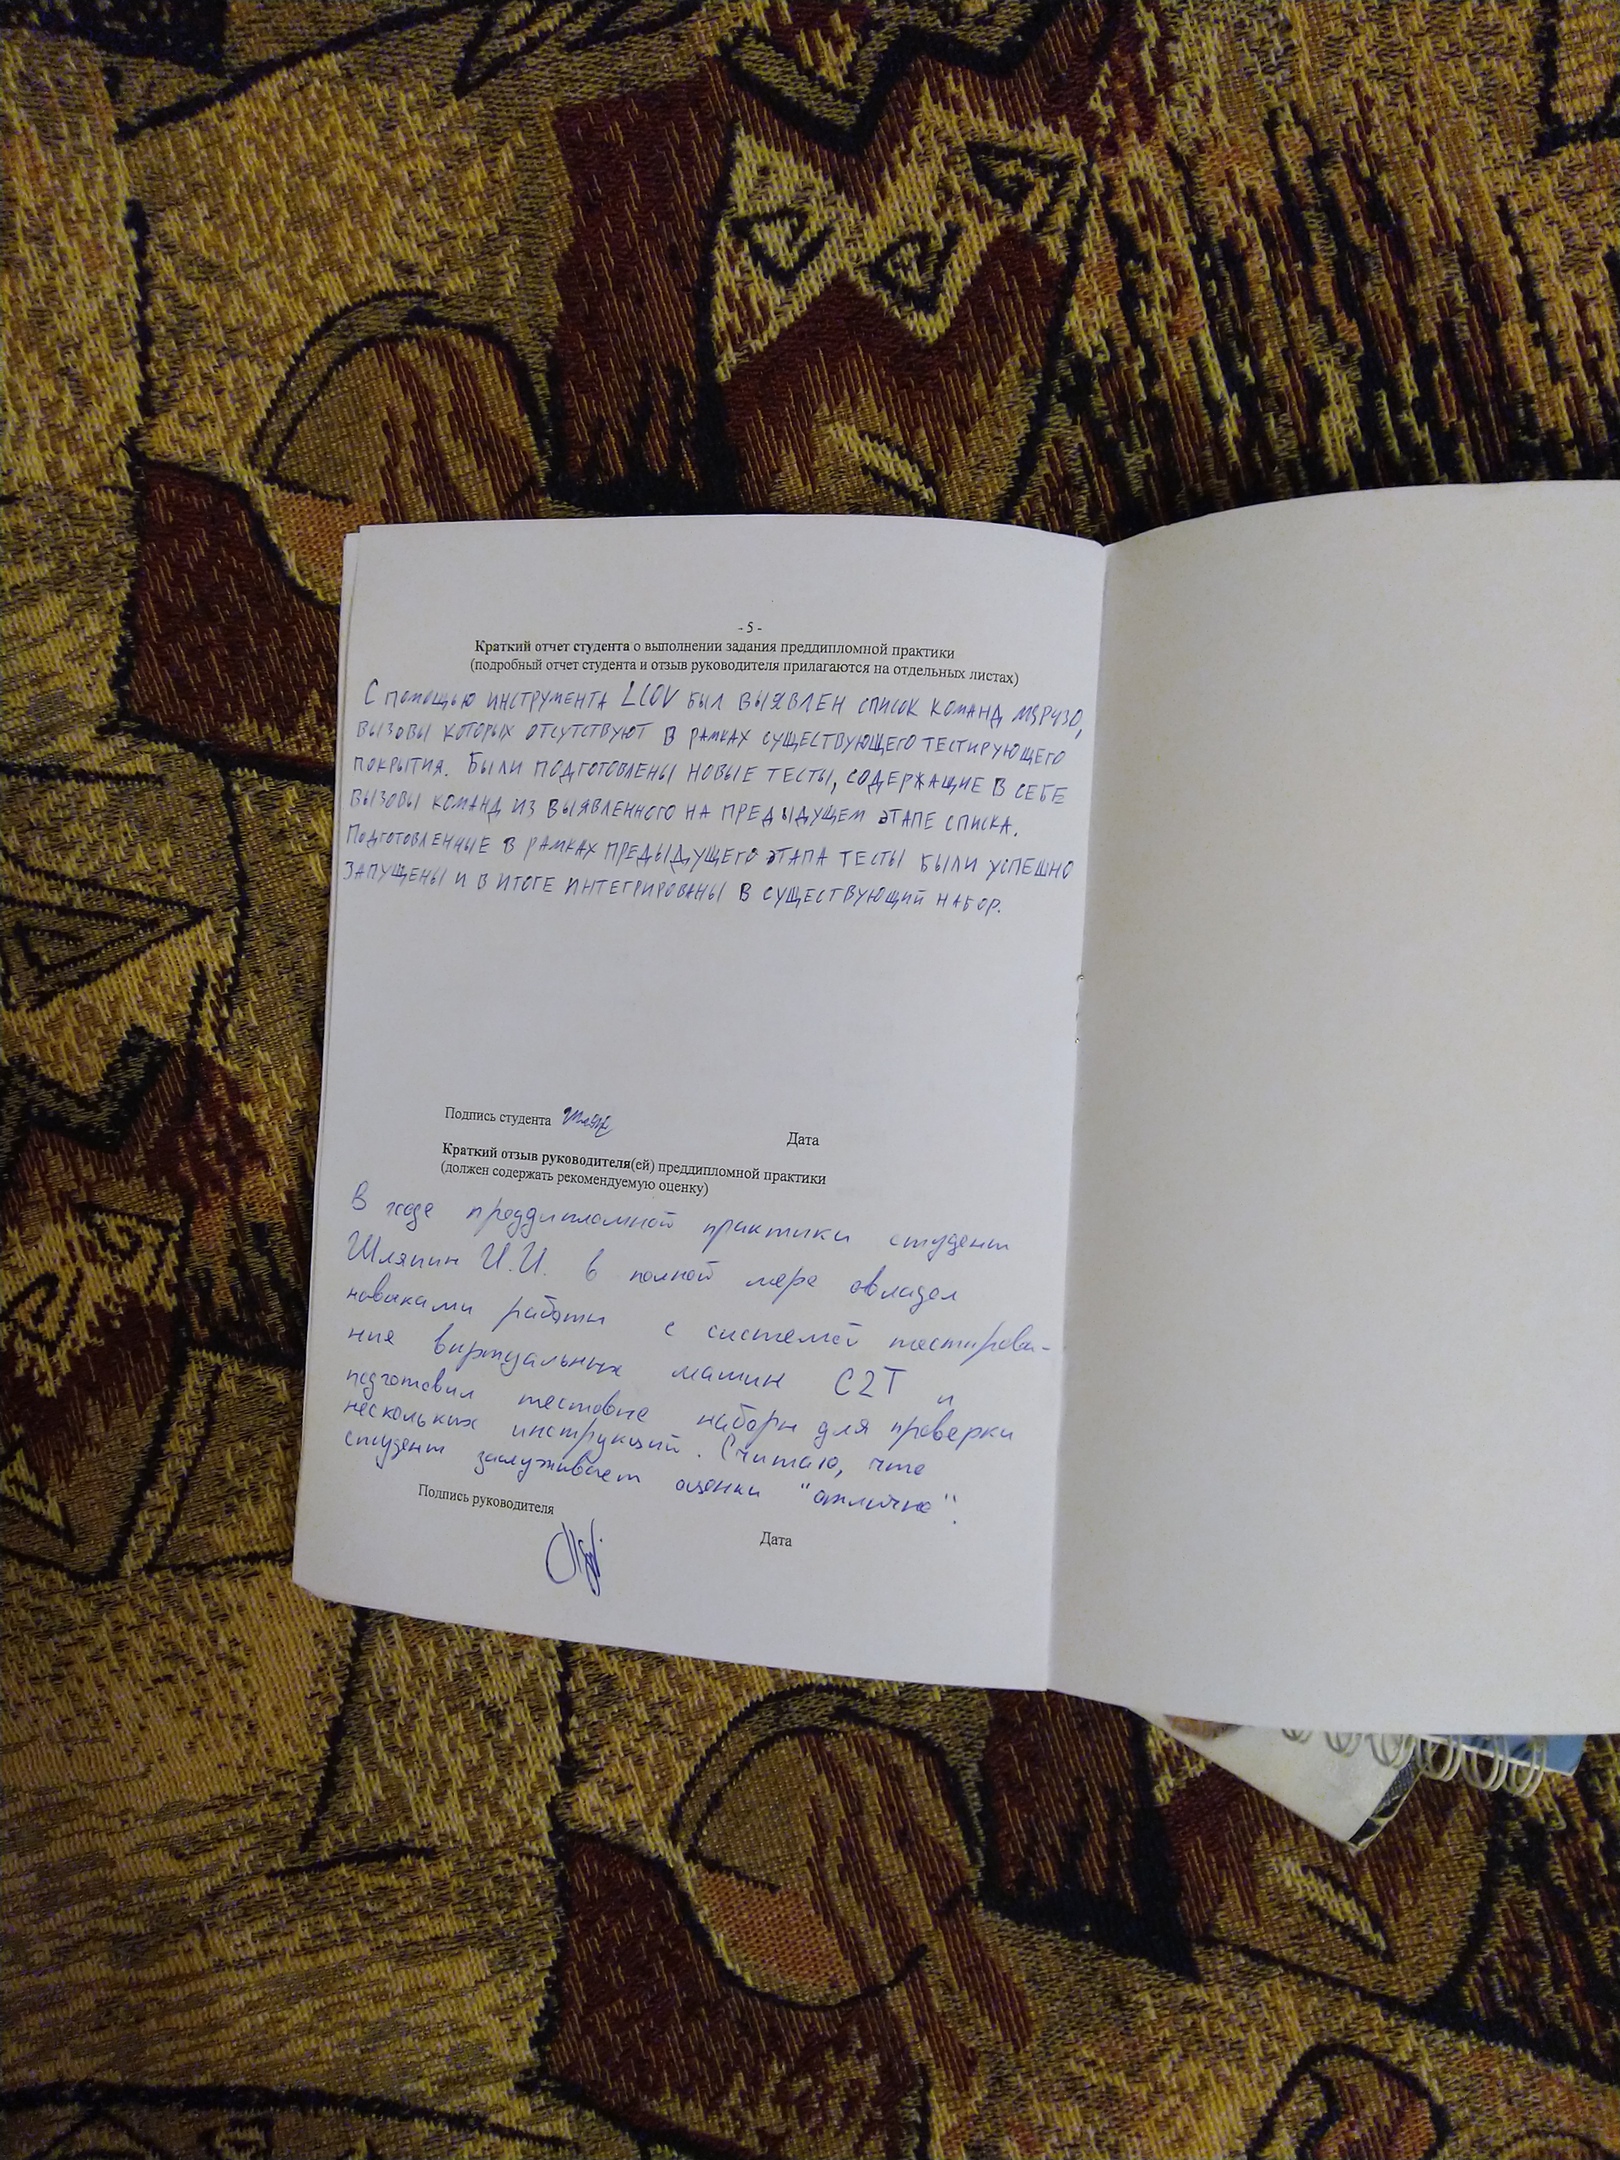 - 5 -
Краткий отчет студента о выполнении задания преддипломной практики
(подробный отчет студента и отзыв руководителя прилагаются на отдельных листах)
С помощью инструмента LCOV был выявлен список команд MSP430,
вызовы которых отсутствуют в рамках существующего тестирующего
покрытия. Были подготовлены новые тесты, содержащие в себе
вызовы команд из выявленного на предыдущем этапе списка.
Подготовленные в рамках предыдущего этапа тесты были успешно
запущены и в итоге интегрированы в существующий набор.
Подпись студента
Дата
Краткий отзыв руководителя(ей) преддипломной практики
(должен содержать рекомендуемую оценку)
В ходе преддипломной практики студент
Шляпин И.И. в полной мере овладел
навыками работы с системой тестирова-
ния виртуальных машин C2T и
подготовил тестовые наборы для проверки
нескольких инструкций. Считаю, что
студент заслуживает оценки "отлично".
Подпись руководителя
Дата